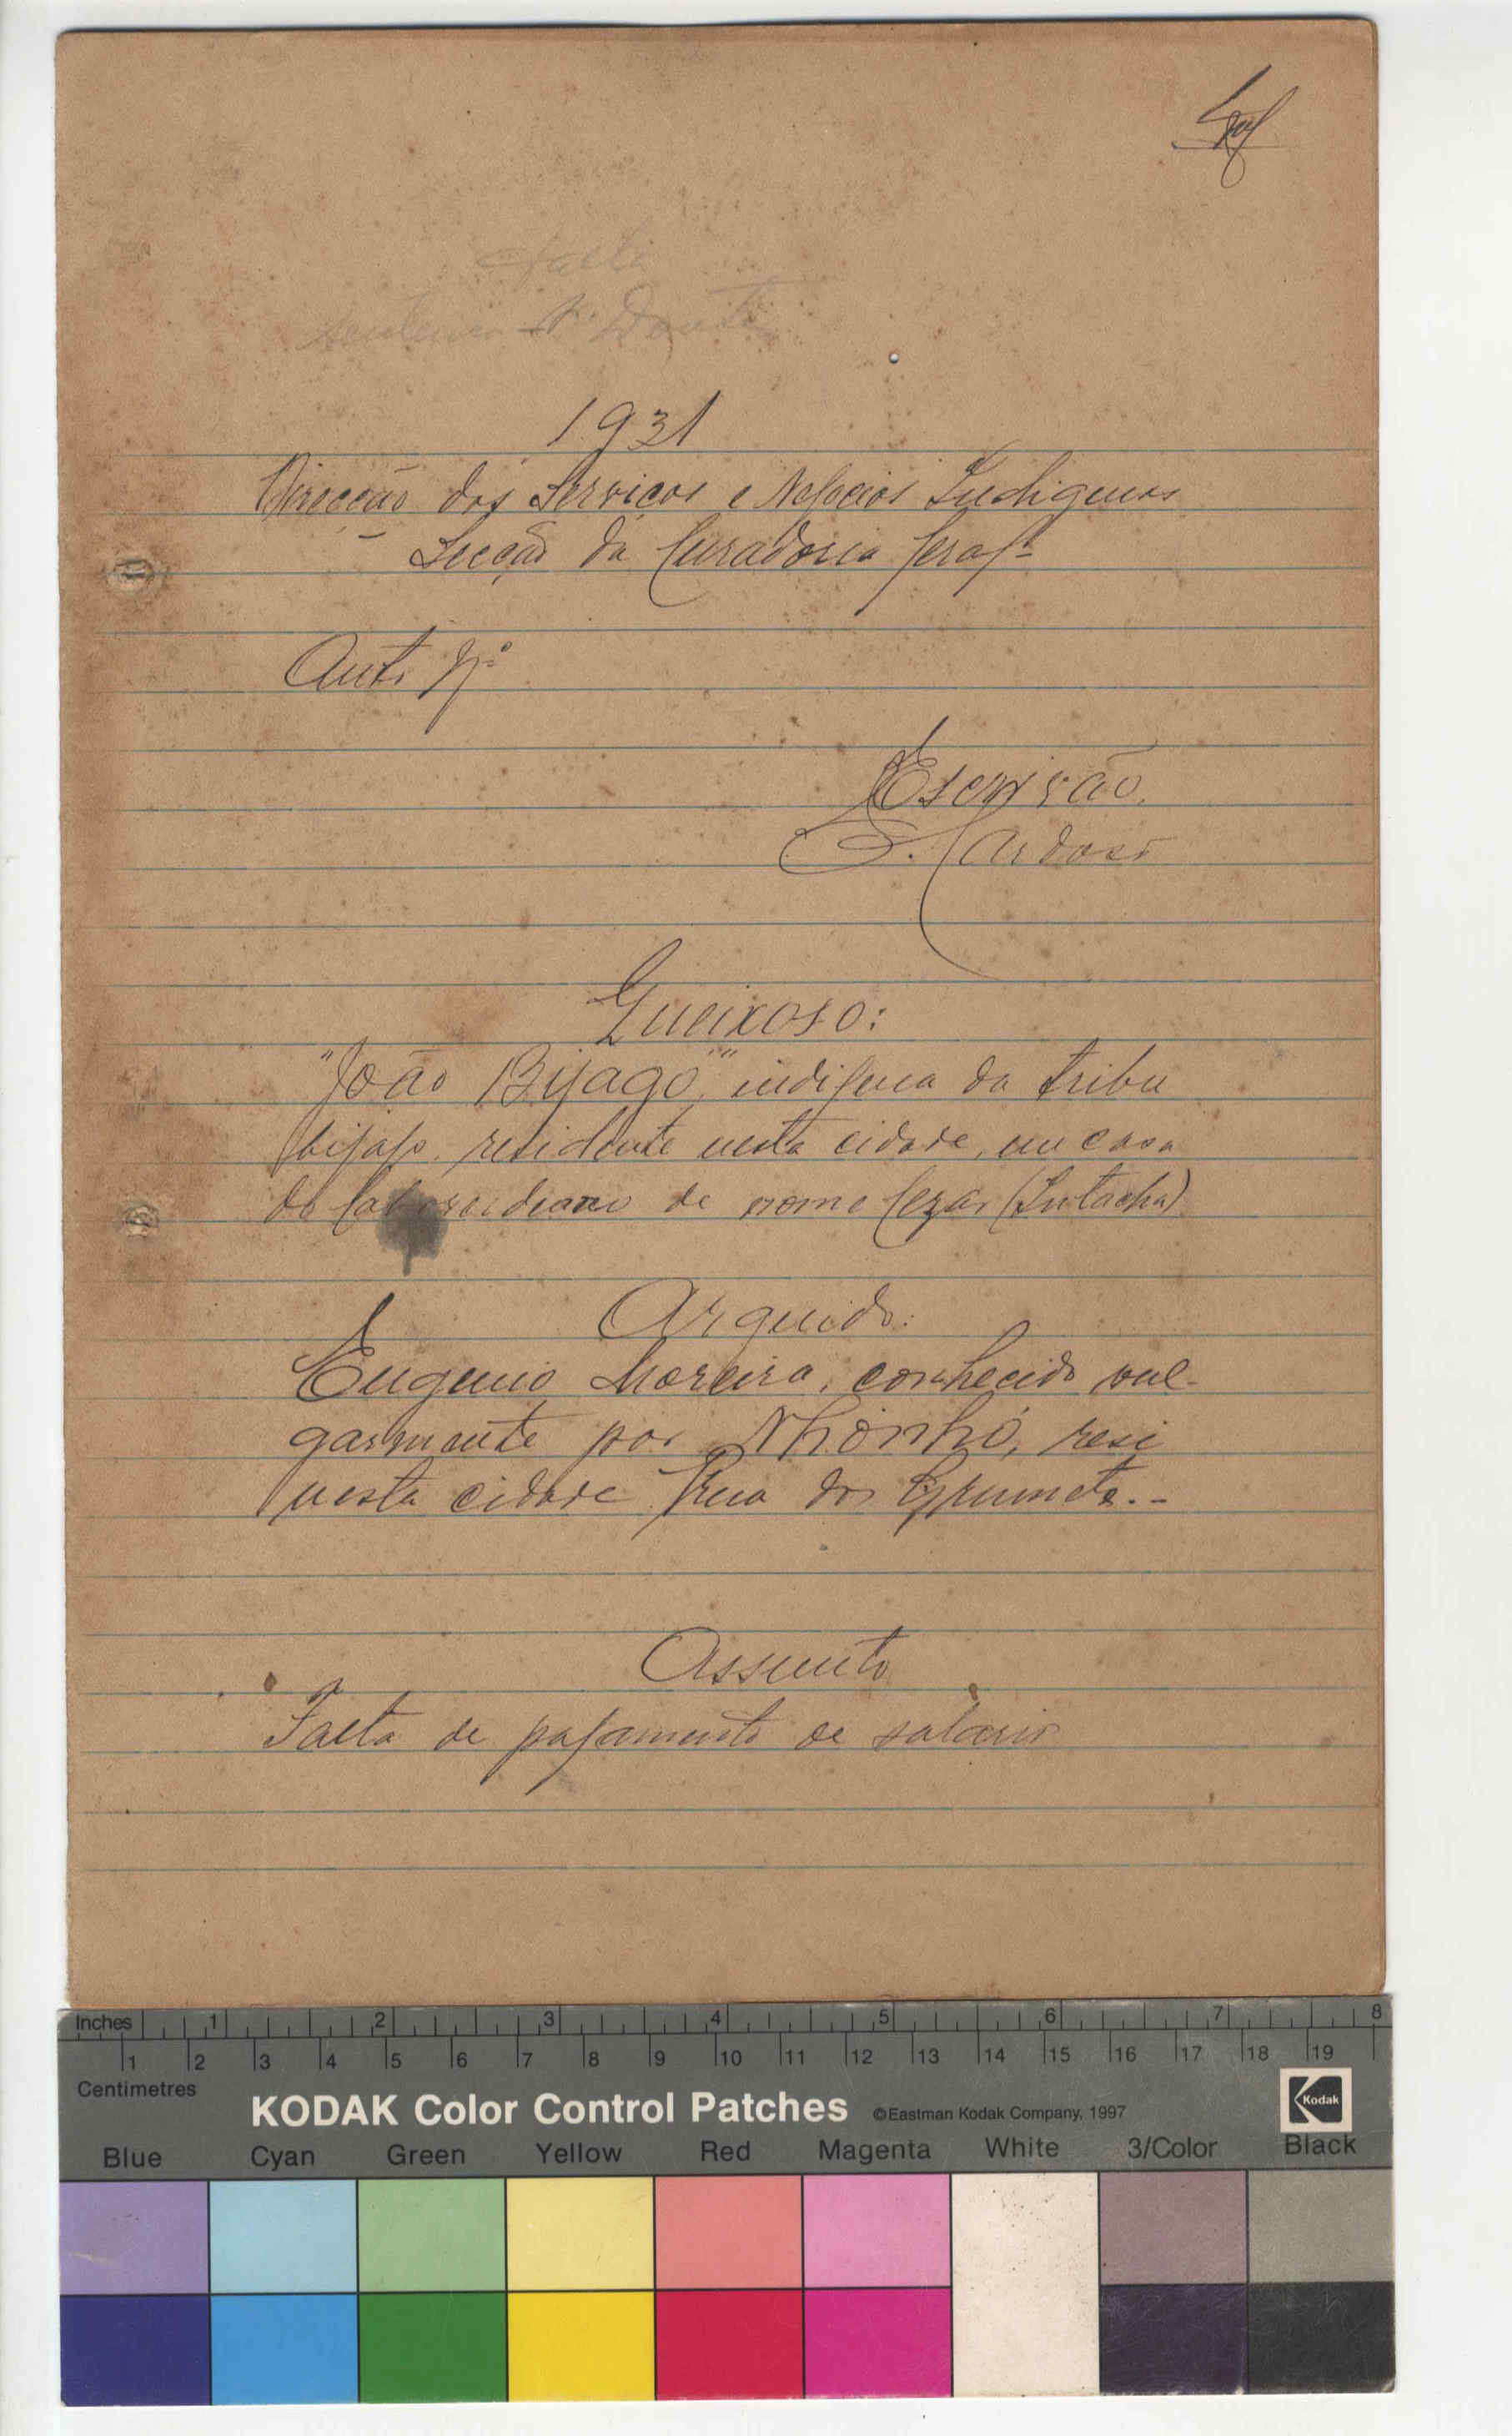 Falta
1931
Direcção dos Serviços e Negocios Indigenas
Secção da Curadoria Geral
Auto Nº
Escrivão
Cardoso
Queixoso:
"João Bijagó", indigena da tribu
bijagó, residente nesta cidade, em casa
do Caboverdeano de nome Cezar (Intacha)
Arguido:
Eugenio Moreira, conhecido vul-
garmente por Nhônhô, resi
nesta cidade Rua dos Grumete.-
Assunto
Falta de pagamento de salario
Inches 1 2 3 4 5 6 7 8
1 2 3 4 5 6 7 8 9 10 11 12 13 14 15 16 17 18 19
Centimetres
KODAK Color Control Patches ©Eastman Kodak Company, 1997 Kodak
Blue Cyan Green Yellow Red Magenta White 3/Color Black